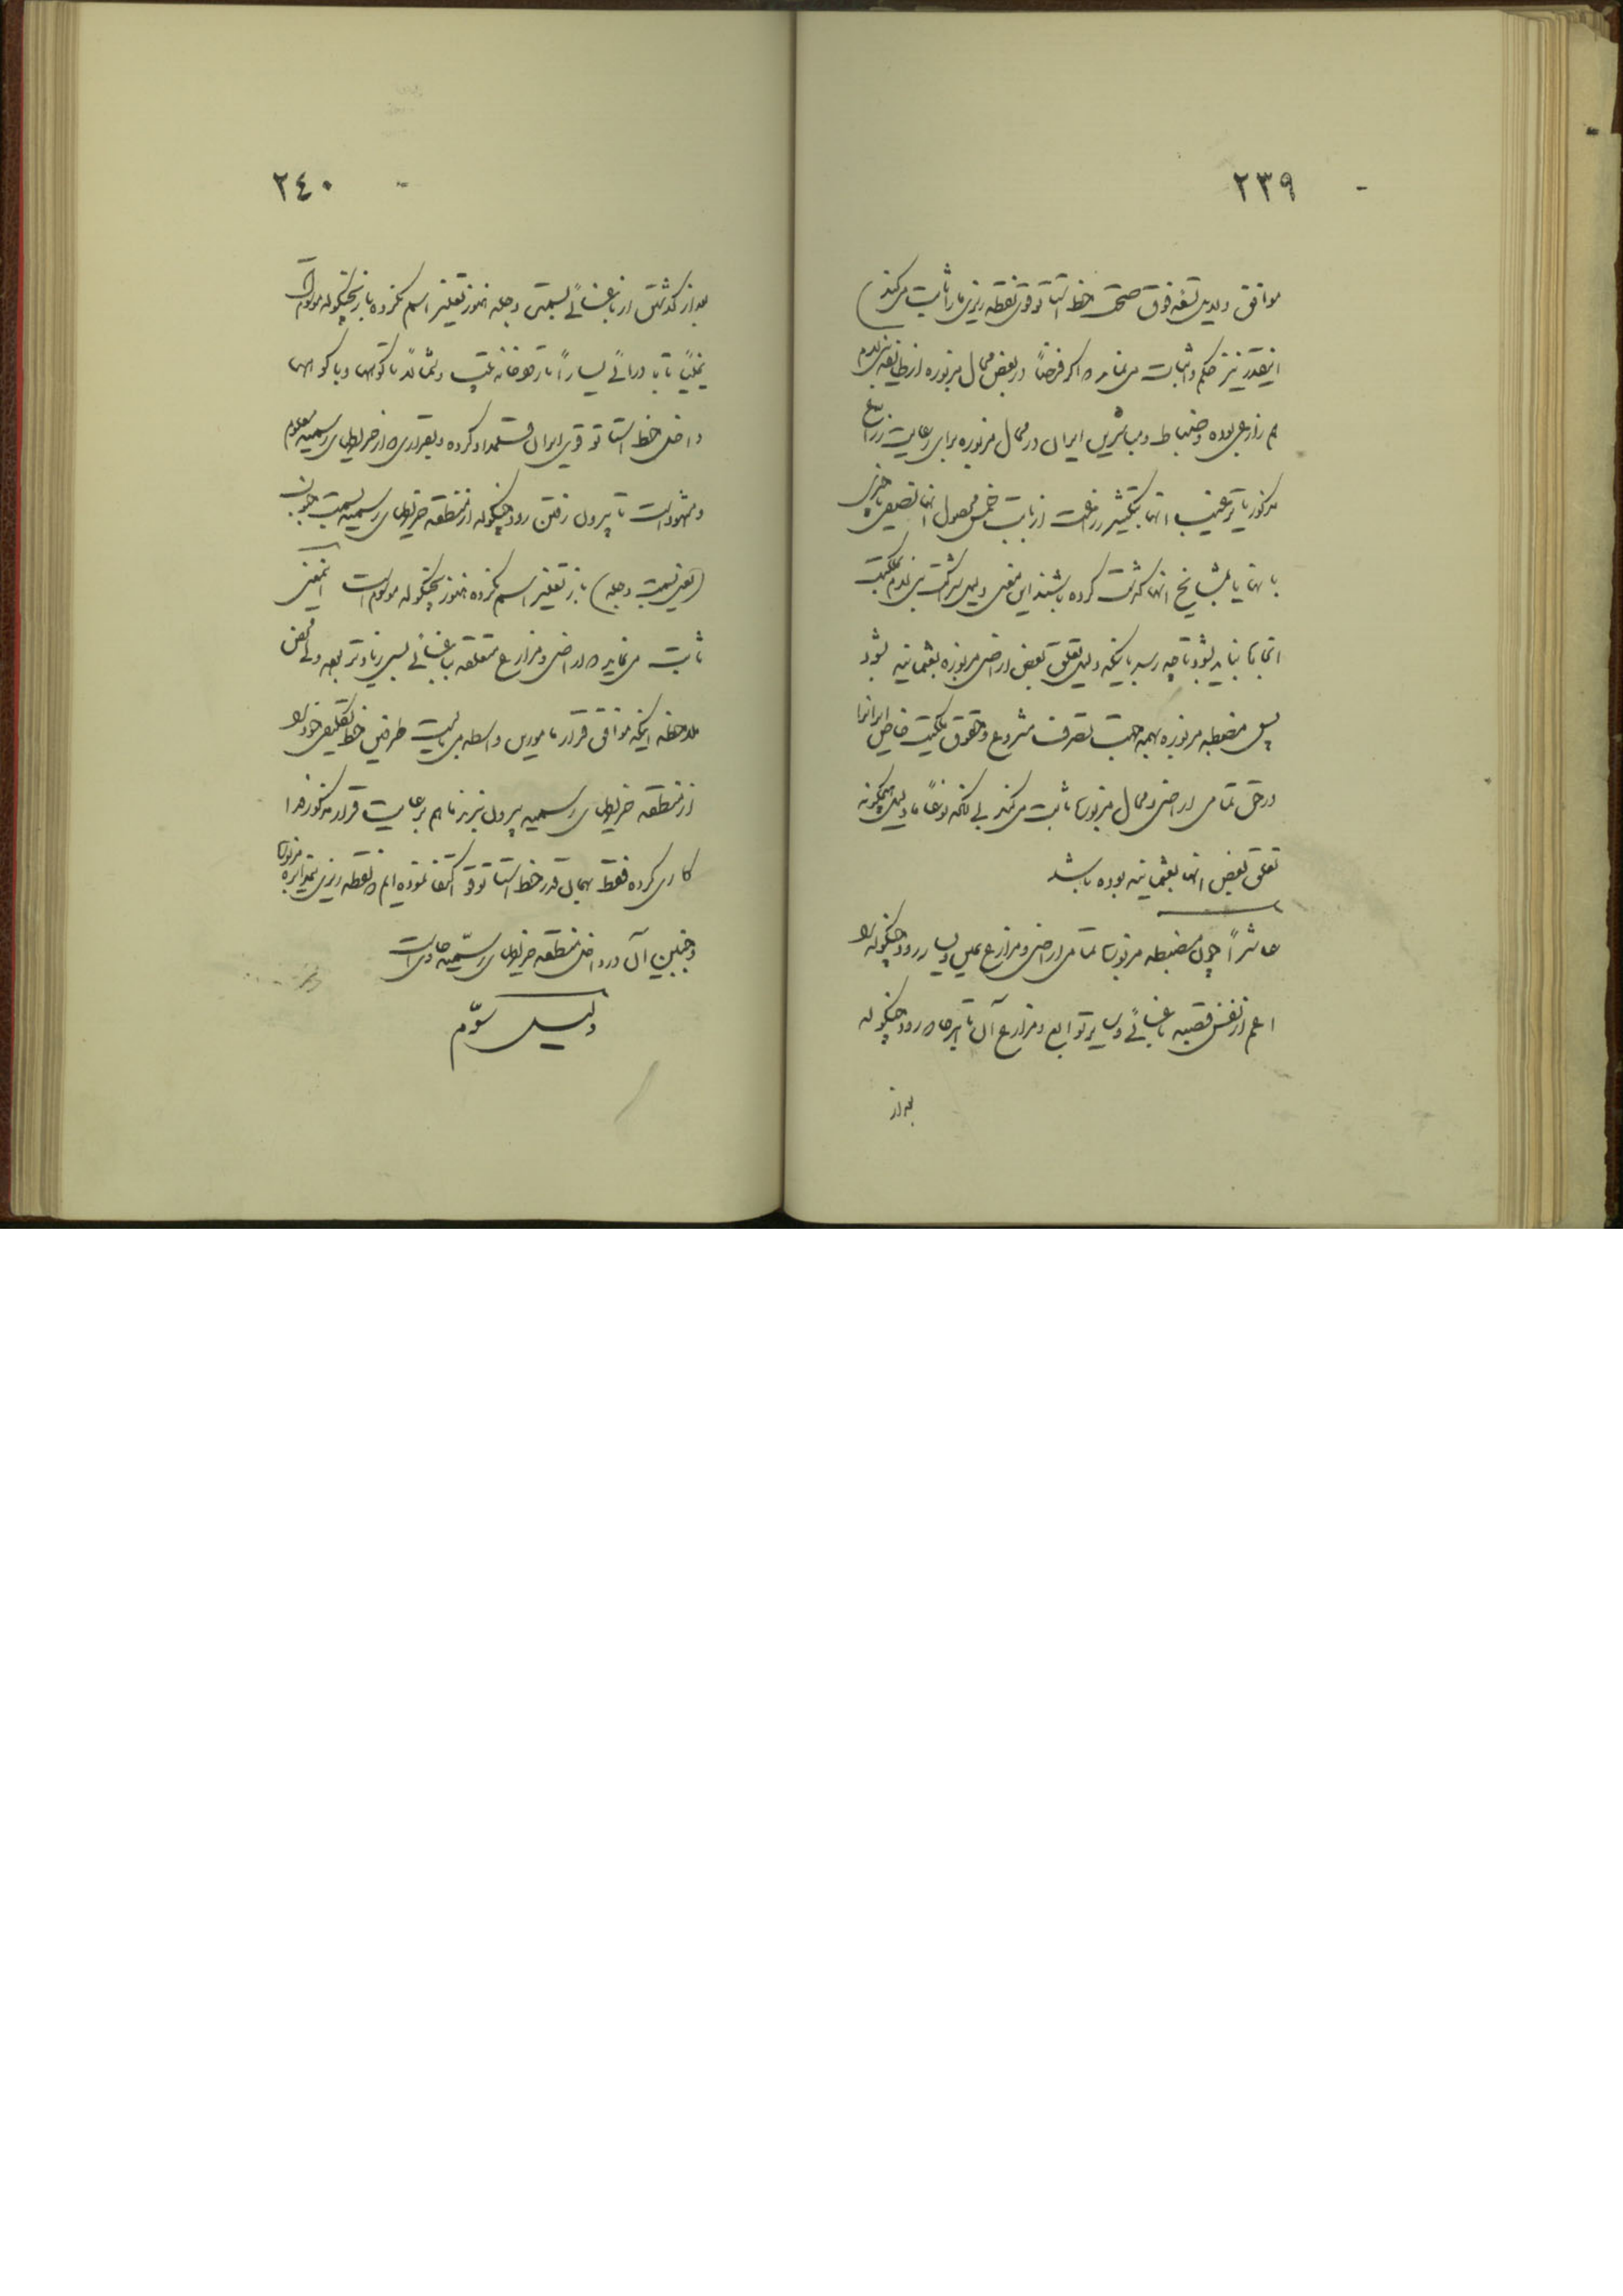 ۲۳۹
موافق دلایل تسعه فوق صحت خط استاتوقوی نقطه ریزی ما را ثابت میکند)
اینقدر نیز حکم و اثبات می نماید که اگر فرضاً در بعض محال مزبوره از طایفه بنی لام
هم زارعی بوده و ضباط و مباشرین ایران در محال مزبوره برای رعایت زراع
مذکور یا ترغیب آنها بتکثیر زراعت از بابت خمس محصول آنها تخفیف یا چیزی
با آنها یا بمشایخ آنها شرکت کرده باشند این معنی دلیل شراکت بنی لام بملکیت
آنجاها نباید بشود تا چه رسد باینکه دلیل تعلق بعض اراضی مزبوره بعثمانیه بشود
پس مضبطه مزبوره بهمه جهت تصرف مشروع و حقوق ملکیت خاص ایرانرا
در حق تمامی اراضی و محال مزبوره ثابت میکند بی آنکه نوعاً ما دلیل هیچگونه
تعلق بعض آنها بعثمانیه بوده باشد
عاشراً چون مضبطه مزبوره تمامی اراضی و مزارع یمین و یسار رود چنگوله را
اعم از نفس قصبه باغسائی و سایر توابع و مزارع آن تا هر جا که رود چنگوله
بعد از
۲٤۰
بعد از گذشتن از باغسائی بسمت دجله هنوز تغییر اسم نکرده باز بچنگوله موسوم است
یمیناً تا بادرائی یساراً تا رودخانه طیب و شمالاً تا کوهها و با کوهها
داخل خط استاتوقوی ایران قلمداد کرده و بقراری که از خریطهای رسمیه معلوم
و مشهود است تا بیرون رفتن رود چنگوله از منطقه خریطهای رسمیه بسمت جنوب
(یعنی بسمت دجله) باز تغییر اسم نکرده هنوز بچنگوله موسوم است اینمعنی
ثابت می نماید که اراضی و مزارع متعلقه بباغسائی بسی زیادتر بوده ولی محض
ملاحظه اینکه موافق قرار مامورین واسطه می بایست طرفین خط تکلیفی خود را
از منطقه خریطهای رسمیه بیرون نبرند ما هم برعایت قرار مذکور فدا
کاری کرده فقط بهمان قدر خط استاتوقو اکتفا نموده ایم که نقطه ریزی بنمرهای مزبوره
و جنبین آن در داخل منطقه خریطهای رسمیه حاوی است
دلیل سوّم